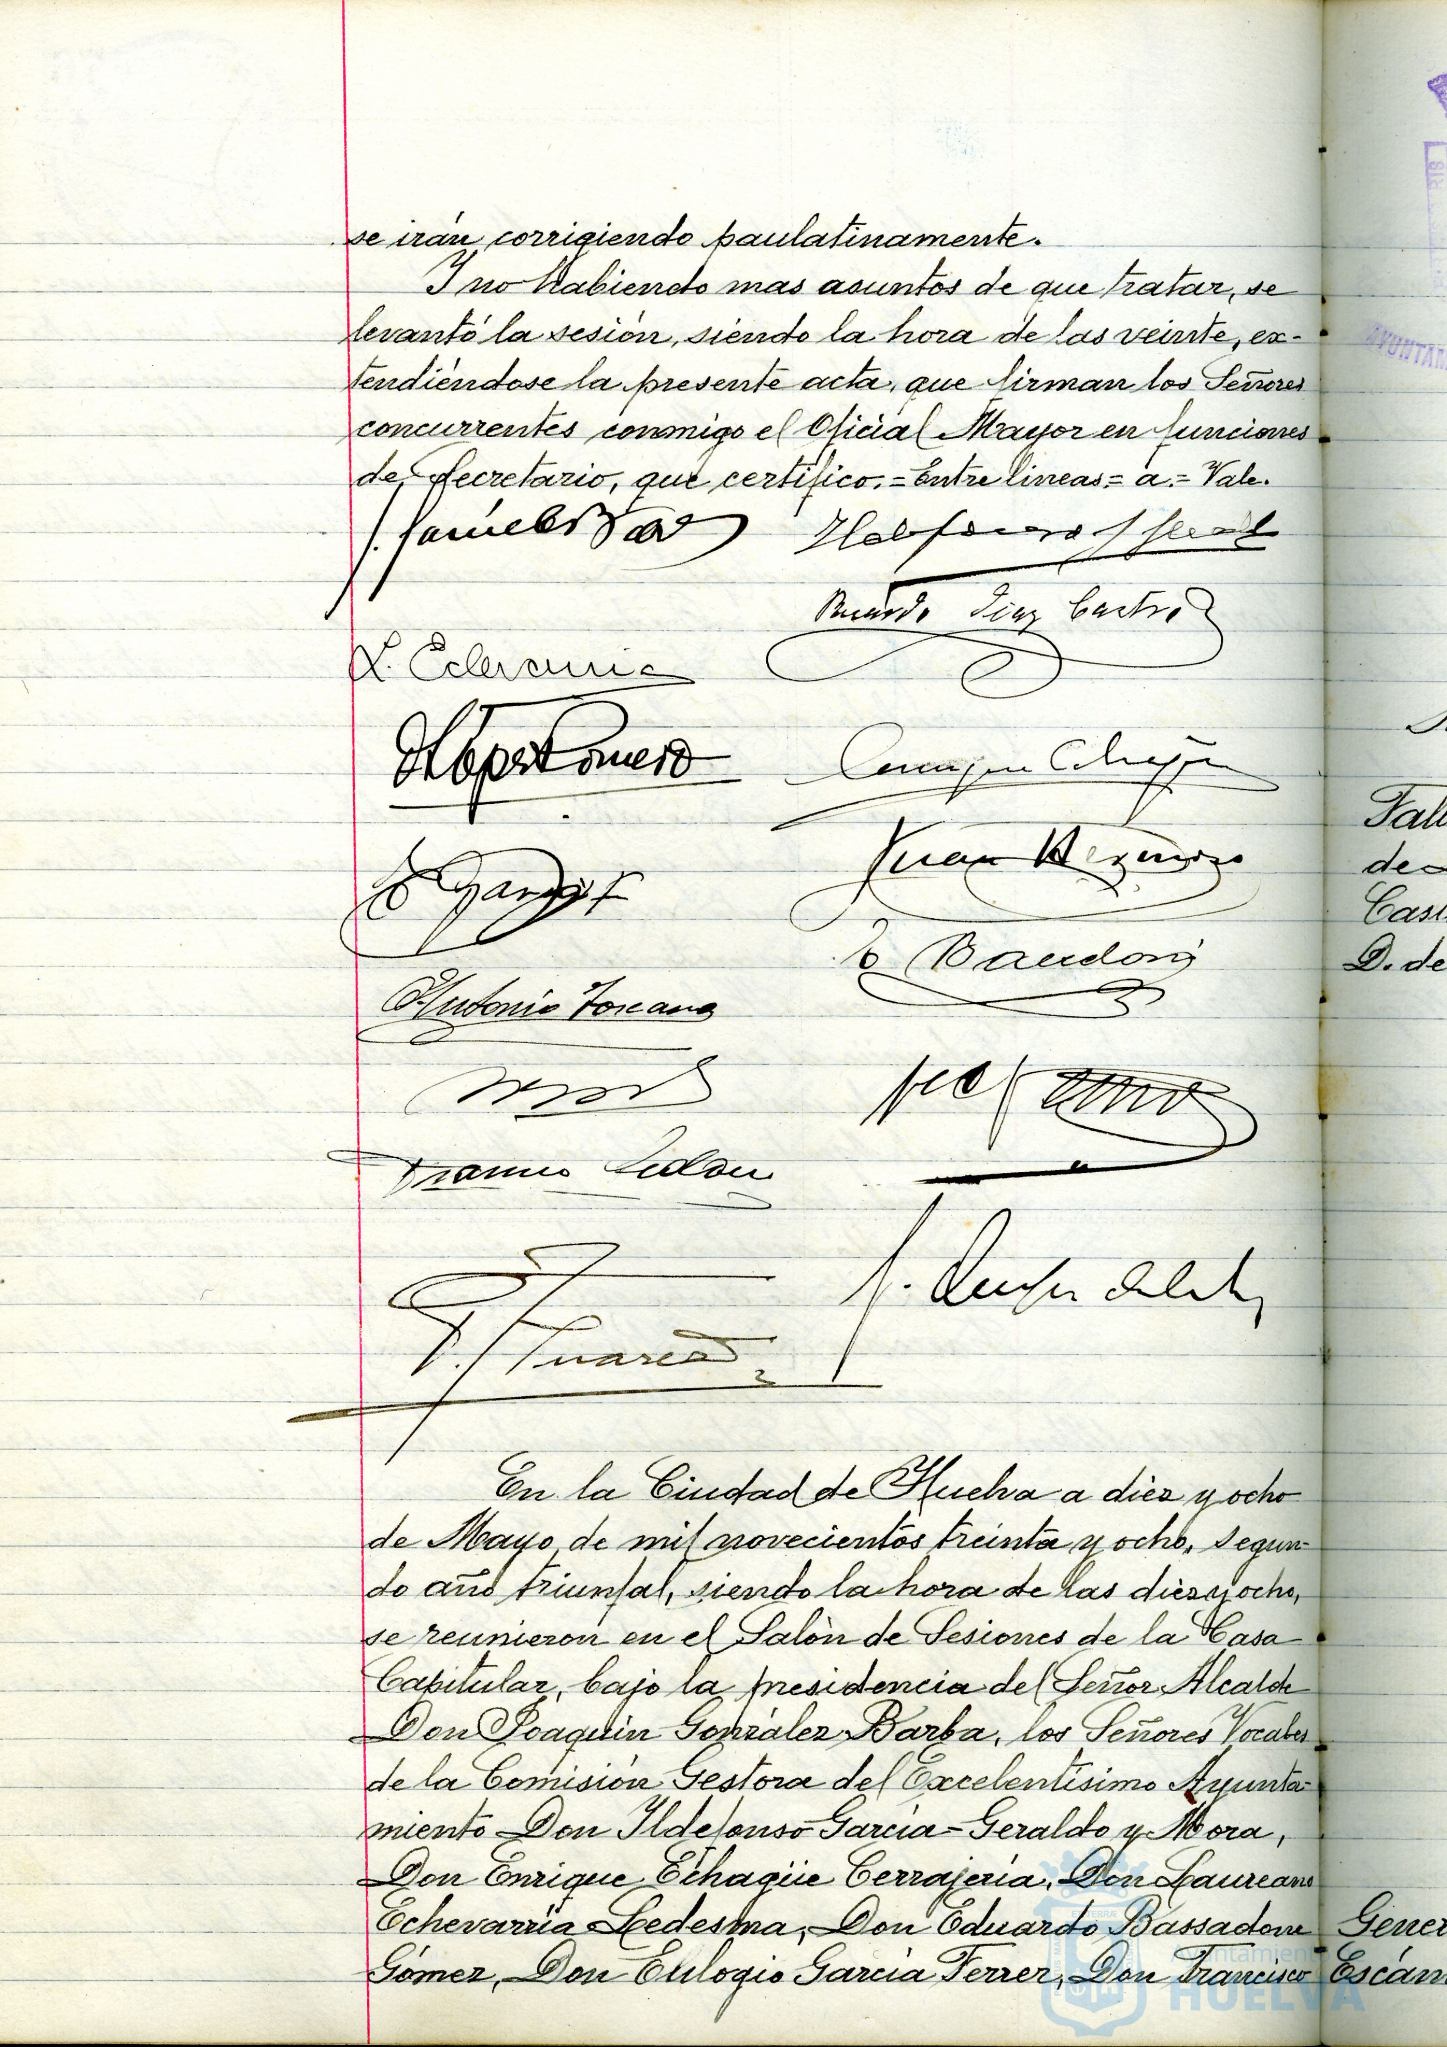 se irán corrigiendo paulatinamente.
Y no habiendo mas asuntos de que tratar, se
levantó la sesión, siendo la hora de las veinte, ex-
tendiéndose la presente acta, que firman los Señores
concurrentes conmigo el Oficial Mayor en funciones
de Secretario, que certifico.=Entre lineas=a=Vale.
Ricardo Diaz Castro
Antonio Toscano
En la Ciudad de Huelva a diez y ocho
de Mayo de mil novecientos treinta y ocho, segun-
do año triunfal, siendo la hora de las diez y ocho,
se reunieron en el Salón de Sesiones de la Casa
Capitular, bajo la presidencia del Señor Alcalde
Don Joaquin González Barba, los Señores Vocales
de la Comisión Gestora del Excelentísimo Ayunta-
miento Don Ildefonso García-Geraldo y Mora,
Don Enrique Echagüe Cerrajeria, Don Laureano
Echevarria Ledesma, Don Eduardo Bassadone
Gómez, Don Eulogio García Ferrer, Don Francisco
Ayuntamiento
HUELVA